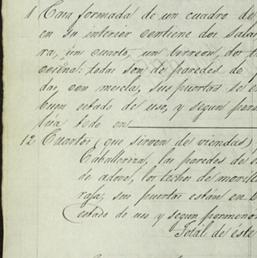 1 Casa formada de un cuadro de
en su interior contiene dos salas
ra, un cuarto, un torreon, dos t
cocina: todas son de paredes de p
das con mezcla, sus puertas se e
buen estado de uso, y segun porm
lúa todo en
12 Cuartos (que sirven de viviendas)
Caballeriza, las paredes de e
de adove, los techos de morill
raja; sus puertas están en b
estado de uso y segun pormenor
Total de este